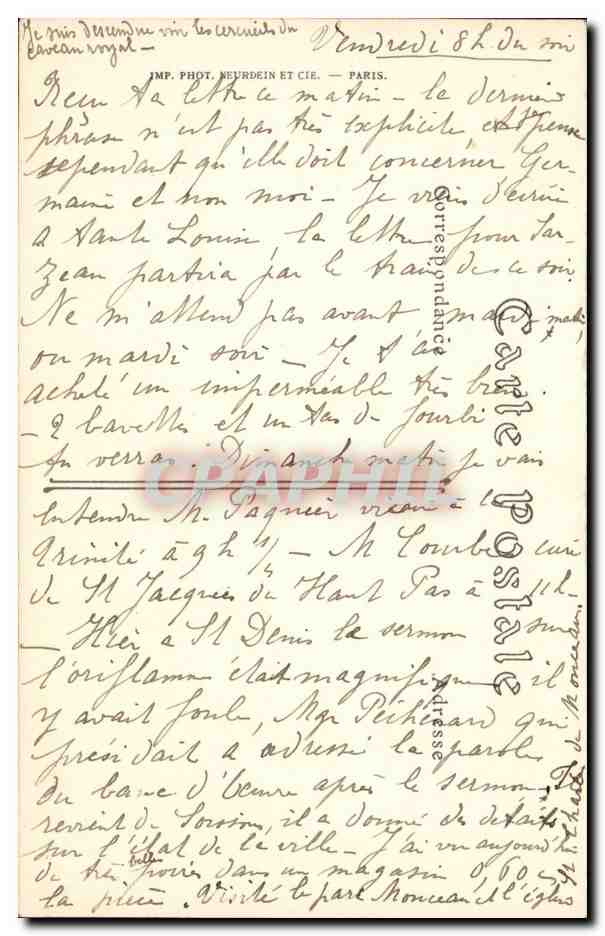 Je suis descendue voir les cercueils du
caveau royal —
Vendredi 8 h. du soir
IMP. PHOT. NEURDEIN ET CIE. — PARIS.
Carte Postale
Correspondance
Adresse
Reçu ta lettre ce matin — la dernière
phrase n'est pas très explicite et je pense
cependant qu'elle doit concerner Ger-
maine et non moi — Je viens d'écrire
à tante Louise, la lettre pour Sar-
zeau partira par le train de ce soir.
Ne m'attend pas avant mardi matin
ou mardi soir — Je t'ai
acheté un imperméable très bien.
— 2 bavettes et un tas de fourbi
tu verras. Dimanche matin je vais
entendre M. Pagnier vicaire à la
Trinité à 9h ½ — M Courbe curé
de St Jacques du Haut Pas à 11h —
— Hier à St Denis le sermon sur
l'oriflamme était magnifique, il
y avait foule, Mgr Péchenard qui
présidait a adressé la parole
du banc d'œuvre après le sermon. Il
revient de Soissons, il a donné des détails
sur l'état de la ville — J'ai vu aujourd'hui
de très belles poires dans un magasin 0,60 c
la pièce. Visité le parc Monceau et l'église
St Charles de Monceau.
CPAPHIL